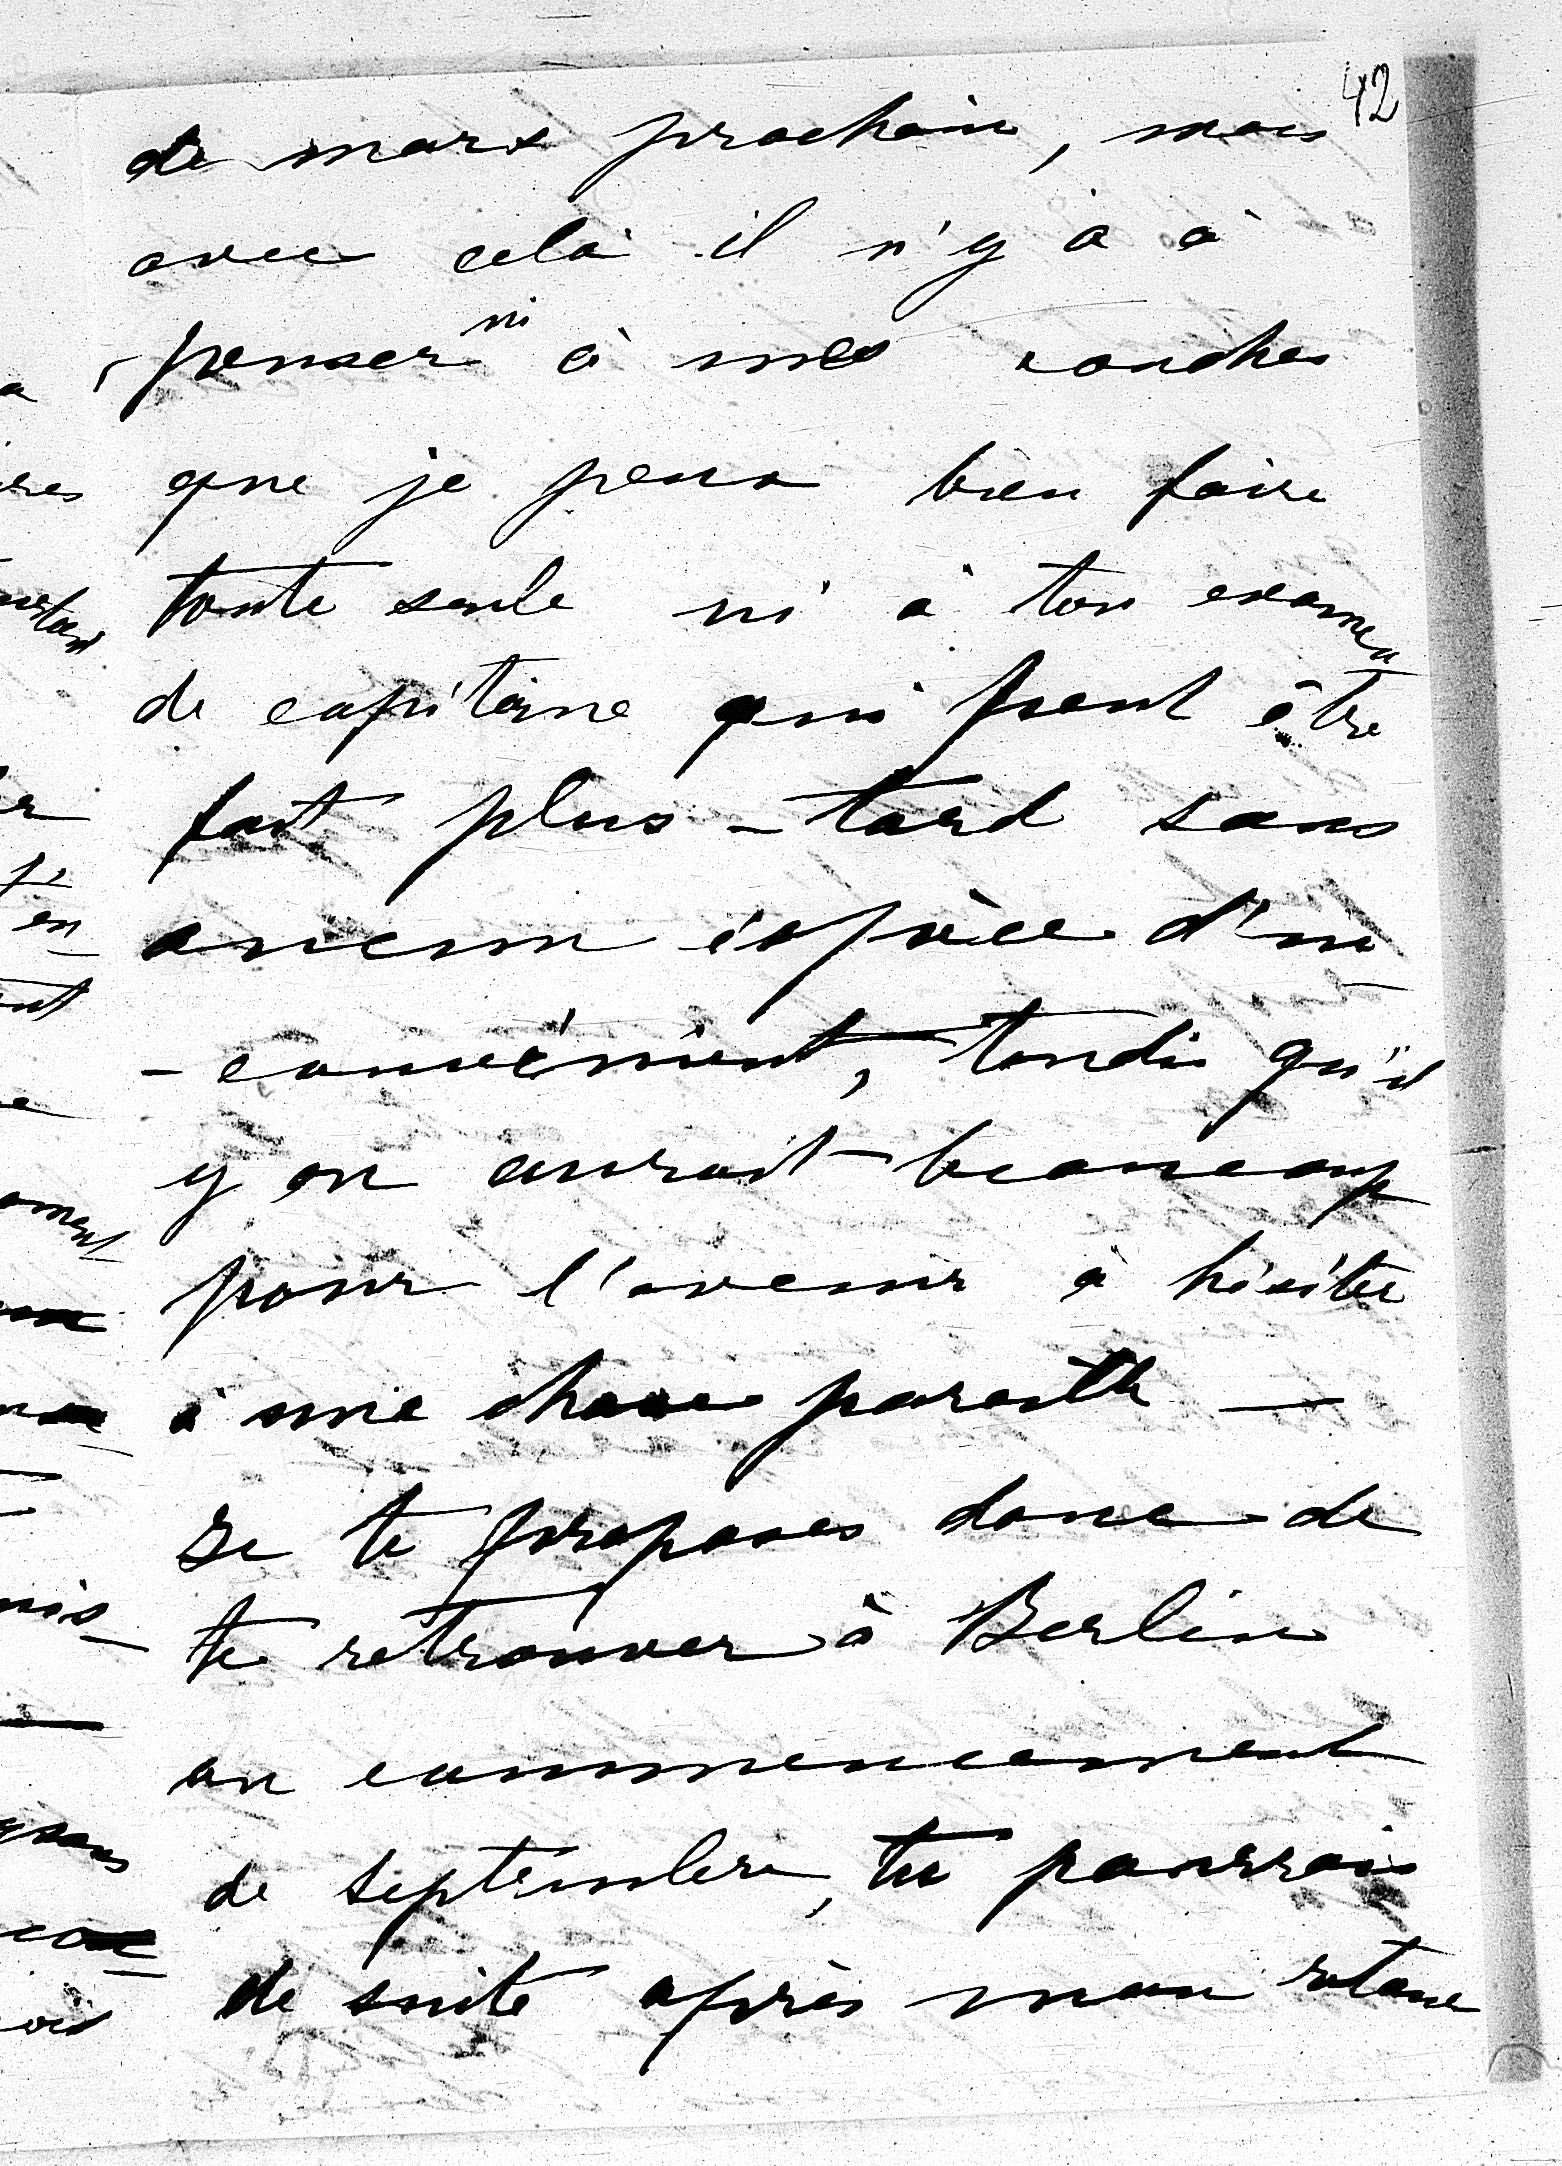 42
de mars prochain, mais
avec celà il n'y à à
penser ni à mes couches
que je peus bien faire
toute seule ni à ton examen
de capitaine qui peut être
fait plus-tard sans
aucun éspèce d'in-
-convénient, tandis qu'il
y en aurait beaucoup
pour l'avenir à hésiter
à une chose pareille —
Je te proposes donc de
te retrouver à Berlin
au commencement
de septembre, tu pourrais
de suite après mon